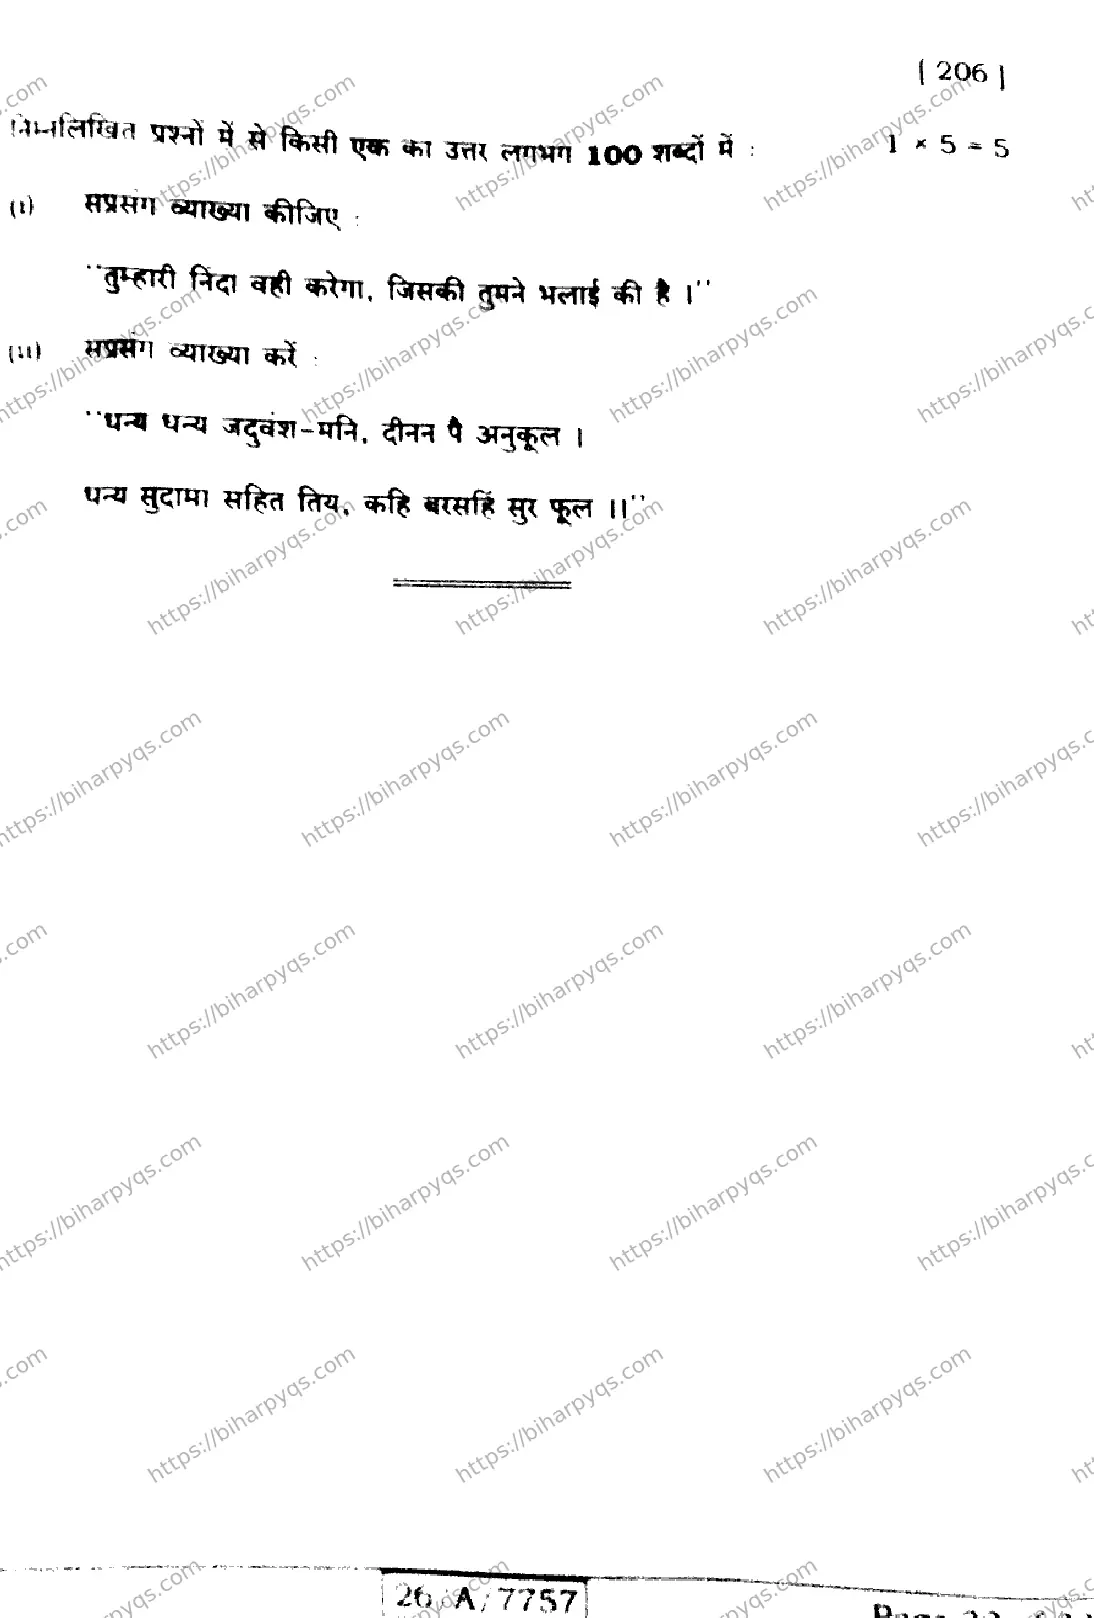 [ 206 ]
निम्नलिखित प्रश्नों में से किसी एक का उत्तर लगभग 100 शब्दों में : 1 × 5 = 5
(i) सप्रसंग व्याख्या कीजिए :
"तुम्हारी निंदा वही करेगा, जिसकी तुमने भलाई की है ।"
(ii) सप्रसंग व्याख्या करें :
"धन्य धन्य जदुवंश-मनि, दीनन पै अनुकूल ।
धन्य सुदामा सहित तिय, कहि बरसहिं सुर फूल ।।"
26 A/7757
https://biharpyqs.com